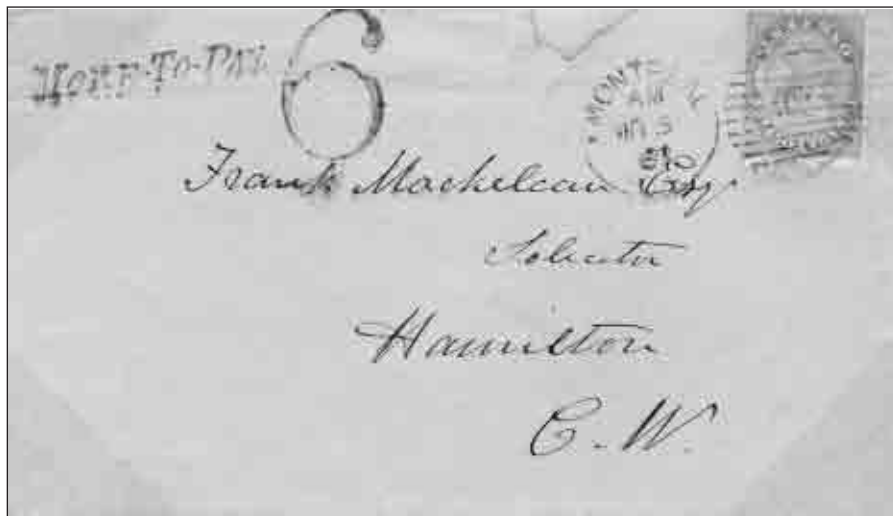 MORE-TO-PAY
6
MONT
AM
Frank Mackelcan Esq
Solicitor
Hamilton
C. W.